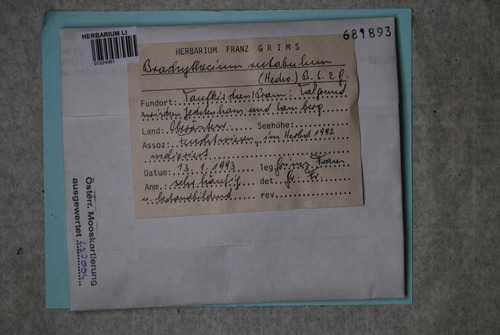 HERBARIUM LI
681893
HERBARIUM FRANZ GRIMS
Brachythecium rutabulum
(Hedw.) B. S. & G.
Fundort: Taufkirchen/Pram: Talgrund
Land: Oberösterr. Seehöhe:
Assoz: im Herbst 1992
Datum: 13.1.1993 leg. Grims, Franz
Anm. sehr häufig det. Gr. Fr.
u. bestandbildend rev.
Österr. Mooskartierung
ausgewertet